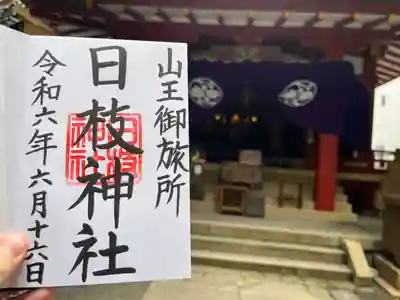 山王御旅所
日枝神社
令和六年六月十六日